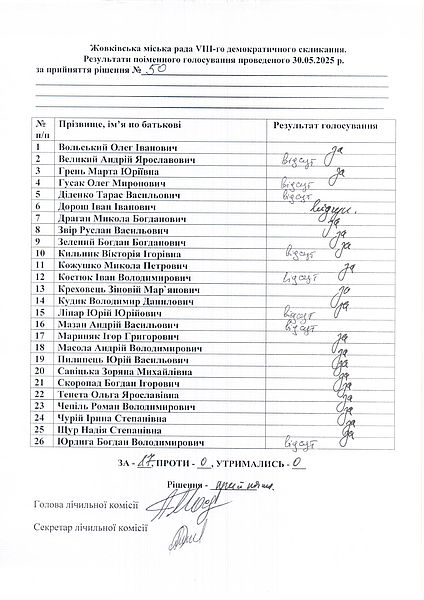 Жовківська міська рада VIII-го демократичного скликання.
Результати поіменного голосування проведеного 30.05.2025 р.
за прийняття рішення № 50
№ п/п Прізвище, ім’я по батькові Результат голосування
1 Вольський Олег Іванович за
2 Великий Андрій Ярославович відсут
3 Грень Марта Юріївна за
4 Гусак Олег Миронович відсут
5 Діденко Тарас Васильович відсут
6 Дорош Іван Іванович
7 Драган Микола Богданович за
8 Звір Руслан Васильович за
9 Зелений Богдан Богданович за
10 Кильник Вікторія Ігорівна відсут
11 Кожушко Микола Петрович за
12 Костюк Іван Володимирович відсут
13 Креховець Зіновій Мар`янович за
14 Кудик Володимир Данилович за
15 Ліпар Юрій Юрійович відсут
16 Мазан Андрій Васильович відсут
17 Мариняк Ігор Григорович за
18 Масола Андрій Володимирович за
19 Пилипець Юрій Васильович за
20 Савіцька Зоряна Михайлівна за
21 Скоропад Богдан Ігорович за
22 Тенета Ольга Ярославівна за
23 Чепіль Роман Володимирович за
24 Чурій Ірина Степанівна за
25 Щур Надія Степанівна за
26 Юрдига Богдан Володимирович відсут
ЗА - 17, ПРОТИ - 0, УТРИМАЛИСЬ - 0
Рішення -
Голова лічильної комісії
Секретар лічильної комісії